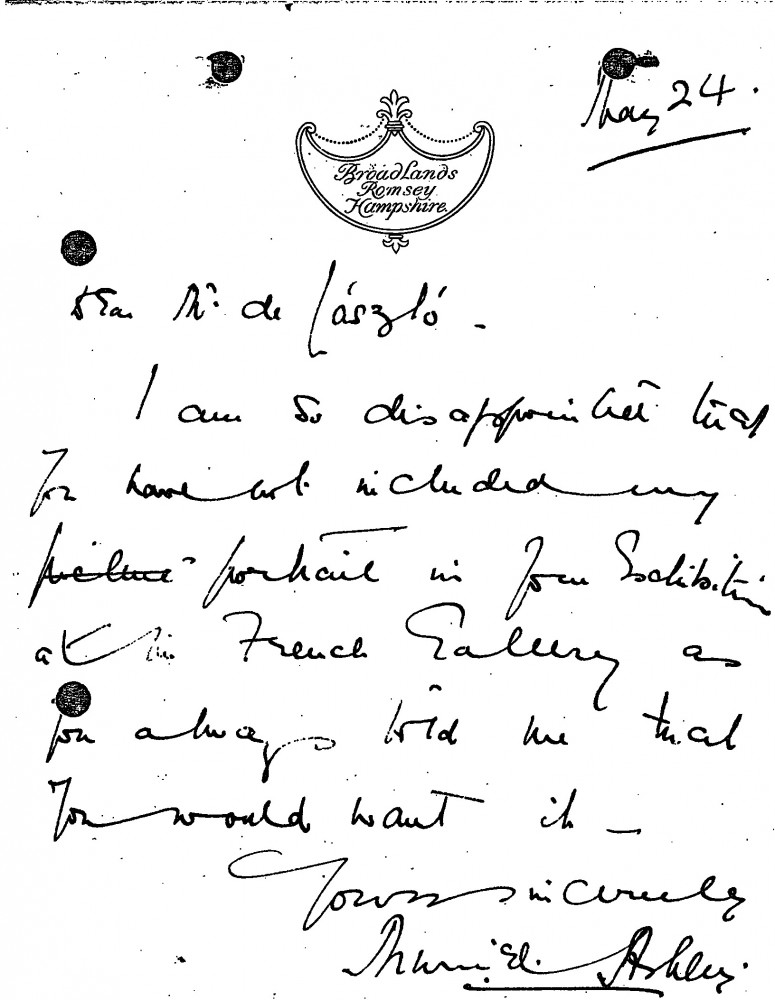 May 24.
Broadlands
Romsey
Hampshire.
Dear Mr. de László -
I am so disappointed that
you have not included my
picture portrait in your Exhibition
at the French Gallery as
you always told me that
you would want it -
Yours sincerely
Muriel Ashley.